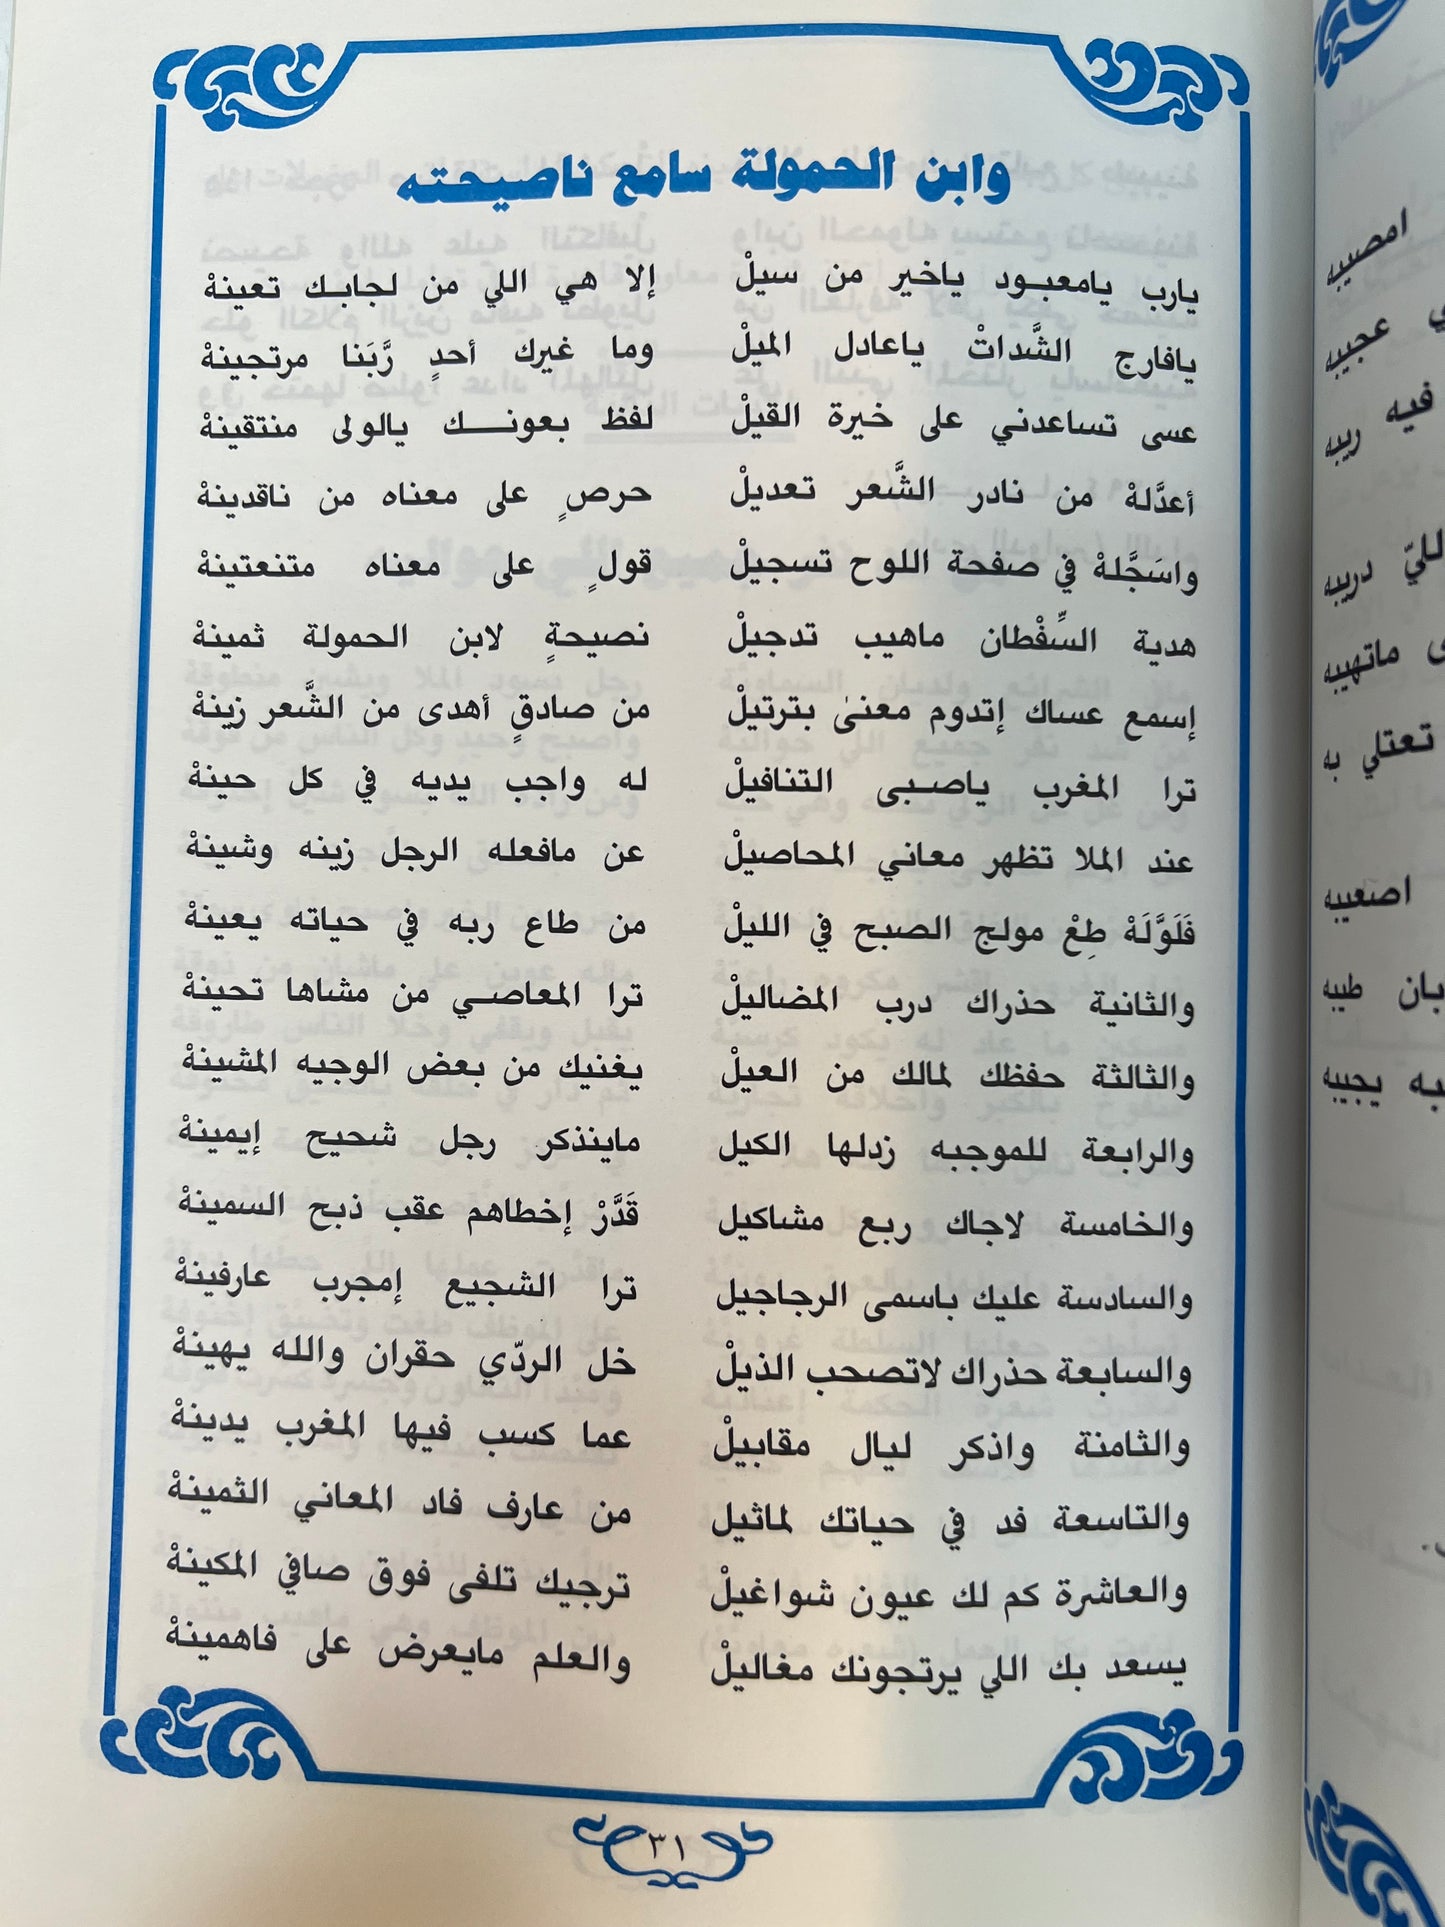 وابن الحمولة سامع ناصيحته
يارب يامعبود ياخير من سيلْ إلا هي اللي من لجابك تعينهْ
يافارج الشَّداتْ ياعادل الميلْ وما غيرك أحدٍ رَّبَنا مرتجينهْ
عسى تساعدني على خيرة القيلْ لفظ بعونك يالولى منتقينهْ
أعدَّلهْ من نادر الشَّعر تعديلْ حرصٍ على معناه من ناقدينهْ
واسَجَّلهْ في صفحة اللوح تسجيلْ قولٍ على معناه متنعتينهْ
هدية السِّفْطان ماهيب تدجيلْ نصيحةٍ لابن الحمولة ثمينهْ
إسمع عساك إتدوم معنىٰ بترتيلْ من صادقٍ أهدى من الشَّعر زينهْ
ترا المغرب ياصبى التنافيلْ له واجب يديه في كل حينهْ
عند الملا تظهر معاني المحاصيلْ عن مافعله الرجل زينه وشينهْ
فَلَوَّلَهْ طِعْ مولج الصبح في الليلْ من طاع ربه في حياته يعينهْ
والثانية حذراك درب المضاليلْ ترا المعاصي من مشاها تحينهْ
والثالثة حفظك لمالك من العيلْ يغنيك من بعض الوجيه المشينهْ
والرابعة للموجبه زدلها الكيل ماينذكر رجل شحيح إيمينهْ
والخامسة لاجاك ربع مشاكيل قَدَّرْ إخطاهم عقب ذبح السمينهْ
والسادسة عليك باسمى الرجاجيل ترا الشجيع إمجرب عارفينهْ
والسابعة حذراك لاتصحب الذيلْ خل الردّي حقران والله يهينهْ
والثامنة واذكر ليال مقابيلْ عما كسب فيها المغرب يدينهْ
والتاسعة فد في حياتك لماثيل من عارف فاد المعاني الثمينهْ
والعاشرة كم لك عيون شواغيلْ ترجيك تلفى فوق صافي المكينهْ
يسعد بك اللي يرتجونك مغاليلْ والعلم مايعرض على فاهمينهْ
٣١
امصيبه
عجيبه
فيه ريبه
دريبه
ماتهيبه
تعتلي به
اصعيبه
بان طيبه
يجيبه